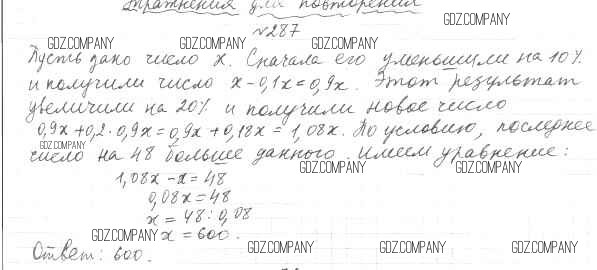 Упражнения для повторения
GDZ.COMPANY
№287
GDZ.COMPANY GDZ.COMPANY GDZ.COMPANY
Пусть дано число x. Сначала его уменьшили на 10%
и получили число x - 0,1x = 0,9x. Этот результат
увеличили на 20% и получили новое число
0,9x + 0,2 · 0,9x = 0,9x + 0,18x = 1,08x. По условию, последнее
GDZ.COMPANY
число на 48 больше данного. Имеем уравнение:
1,08x - x = 48
GDZ.COMPANY GDZ.COMPANY
0,08x = 48
x = 48 : 0,08
GDZ.COMPANY x = 600.
Ответ: 600.
GDZ.COMPANY GDZ.COMPANY GDZ.COMPANY